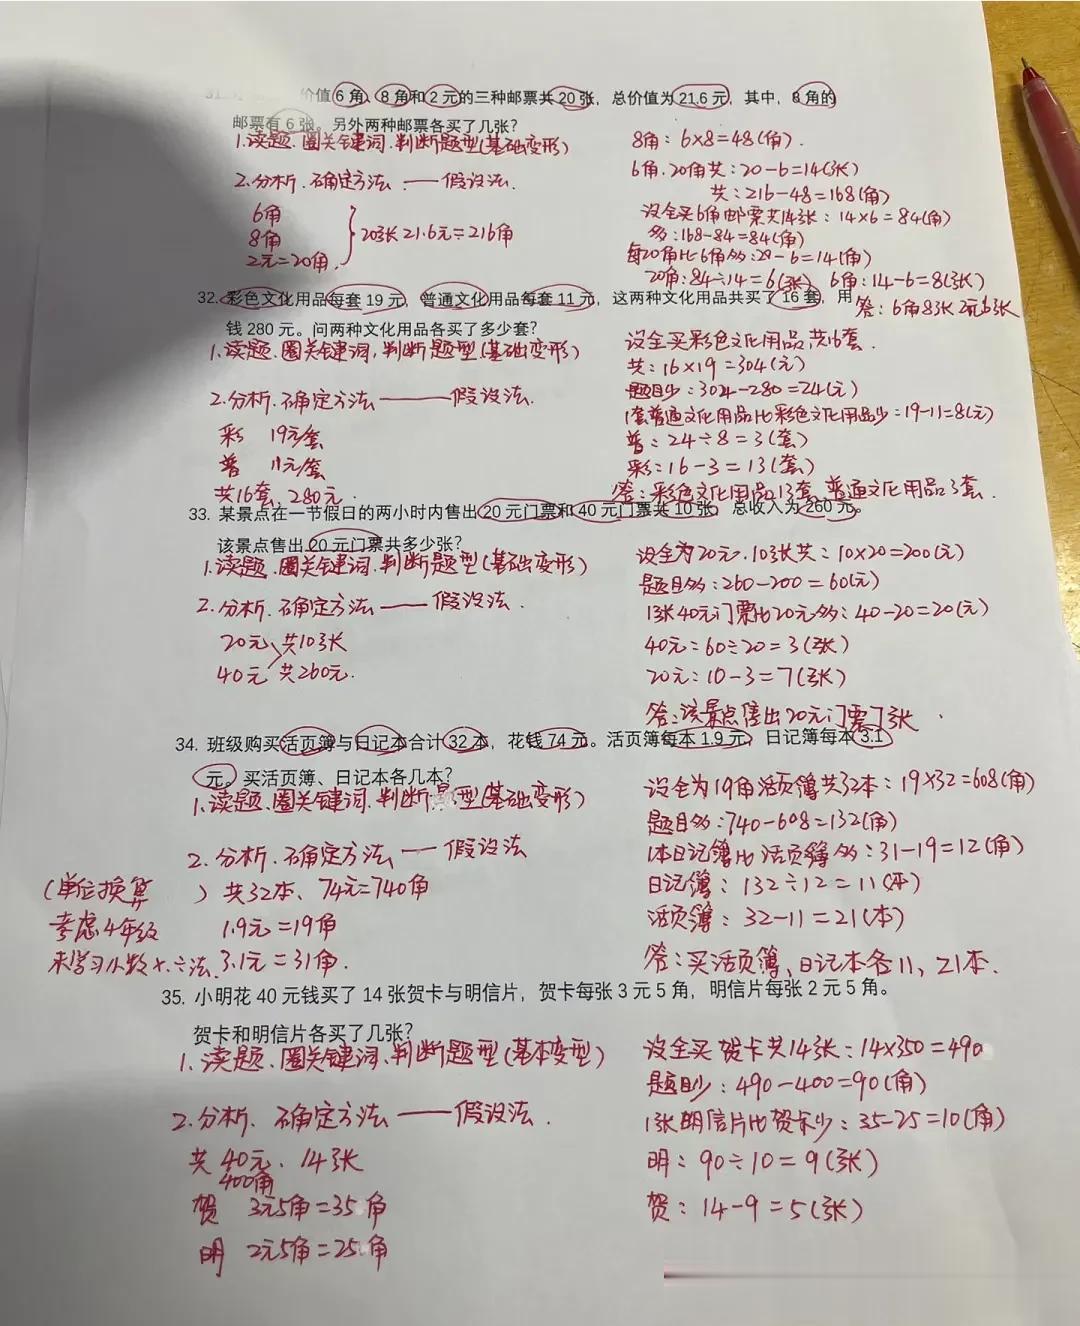 价值6角、8角和2元的三种邮票共20张，总价值为21.6元，其中，8角的
邮票有6张。另外两种邮票各买了几张？
1.读题、圈关键词、判断题型(基础变形)
2.分析、确定方法——假设法.
6角
8角
2元=20角
20张 21.6元=216角
8角：6×8=48(角).
6角、20角共：20-6=14(张)
共：216-48=168(角)
设全买6角邮票共14张：14×6=84(角)
多：168-84=84(角)
每20角比6角多：20-6=14(角)
20角：84÷14=6(张) 6角：14-6=8(张)
答：6角8张 2元6张
32. 彩色文化用品每套19元，普通文化用品每套11元，这两种文化用品共买了16套，用
钱280元。问两种文化用品各买了多少套？
1.读题、圈关键词，判断题型(基础变形)
2.分析、确定方法——假设法.
彩 19元/套
普 11元/套
共16套、280元.
设全买彩色文化用品共16套.
共：16×19=304(元)
题目少：304-280=24(元)
1套普通文化用品比彩色文化用品少：19-11=8(元)
普：24÷8=3(套)
彩：16-3=13(套)
答：彩色文化用品13套、普通文化用品3套.
33. 某景点在一节假日的两小时内售出20元门票和40元门票共10张，总收入为260元。
该景点售出20元门票共多少张？
1.读题、圈关键词、判断题型(基础变形)
2.分析、确定方法——假设法.
20元 共10张
40元 共260元.
设全为20元、10张共：10×20=200(元)
题目多：260-200=60(元)
1张40元门票比20元多：40-20=20(元)
40元：60÷20=3(张)
20元：10-3=7(张)
答：该景点售出20元门票7张.
34. 班级购买活页簿与日记本合计32本，花钱74元。活页簿每本1.9元，日记簿每本3.1
元。买活页簿、日记本各几本？
1.读题、圈关键词、判断题型(基础变形)
2.分析、确定方法——假设法
(单位换算) 共32本、74元=740角
考虑4年级 1.9元=19角
未学习小数×÷法. 3.1元=31角.
设全为19角活页簿共32本：19×32=608(角)
题目多：740-608=132(角)
1本日记簿比活页簿多：31-19=12(角)
日记簿：132÷12=11(本)
活页簿：32-11=21(本)
答：买活页簿、日记本各11、21本.
35. 小明花40元钱买了14张贺卡与明信片，贺卡每张3元5角，明信片每张2元5角。
贺卡和明信片各买了几张？
1.读题、圈关键词、判断题型(基本变型)
2.分析、确定方法——假设法.
共40元、14张
400角
贺 3元5角=35角
明 2元5角=25角
设全买贺卡共14张：14×350=490
题目少：490-400=90(角)
1张明信片比贺卡少：35-25=10(角)
明：90÷10=9(张)
贺：14-9=5(张)